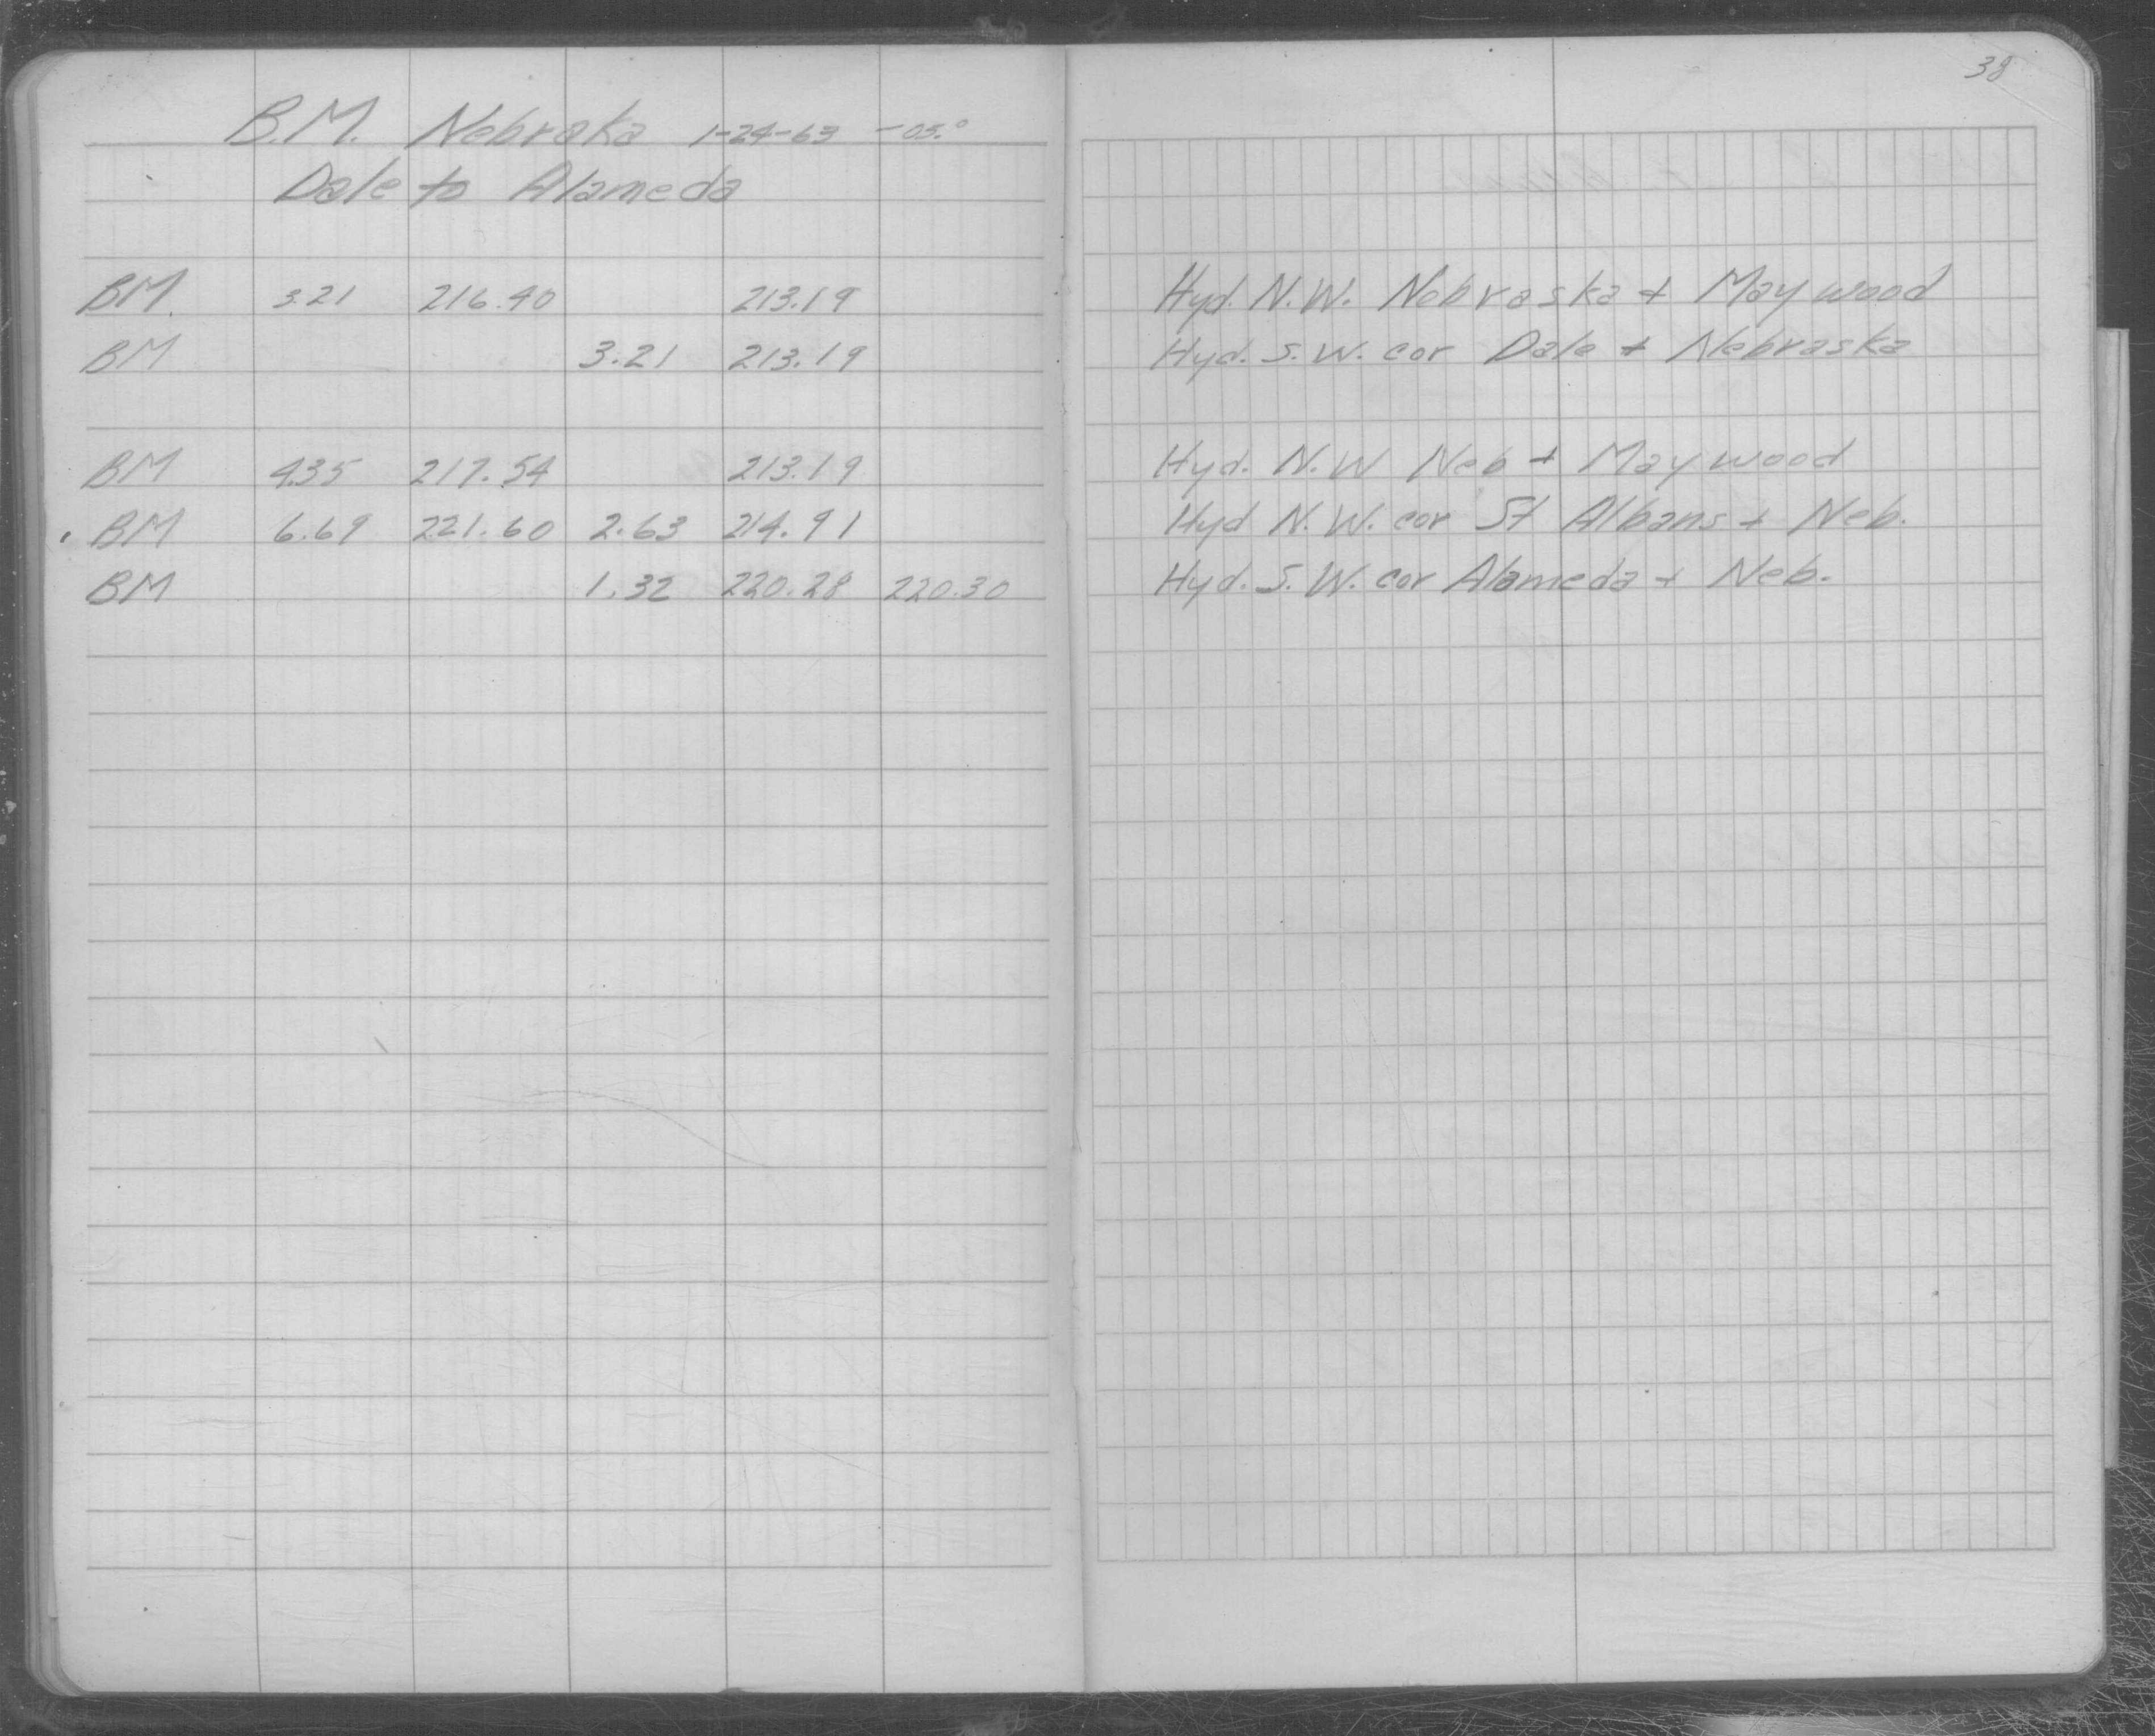 38
B.M. Nebraka 1-24-63 -05.°
Dale to Alameda
BM. 3.21 216.40 213.19 Hyd. N.W. Nebraska + Maywood
BM 3.21 213.19 Hyd. S.W. cor Dale + Nebraska
BM 4.35 217.54 213.19 Hyd. N.W Neb + Maywood
BM 6.69 221.60 2.63 214.91 Hyd N.W. cor St Albans + Neb.
BM 1.32 220.28 220.30 Hyd. S.W. cor Alameda + Neb.